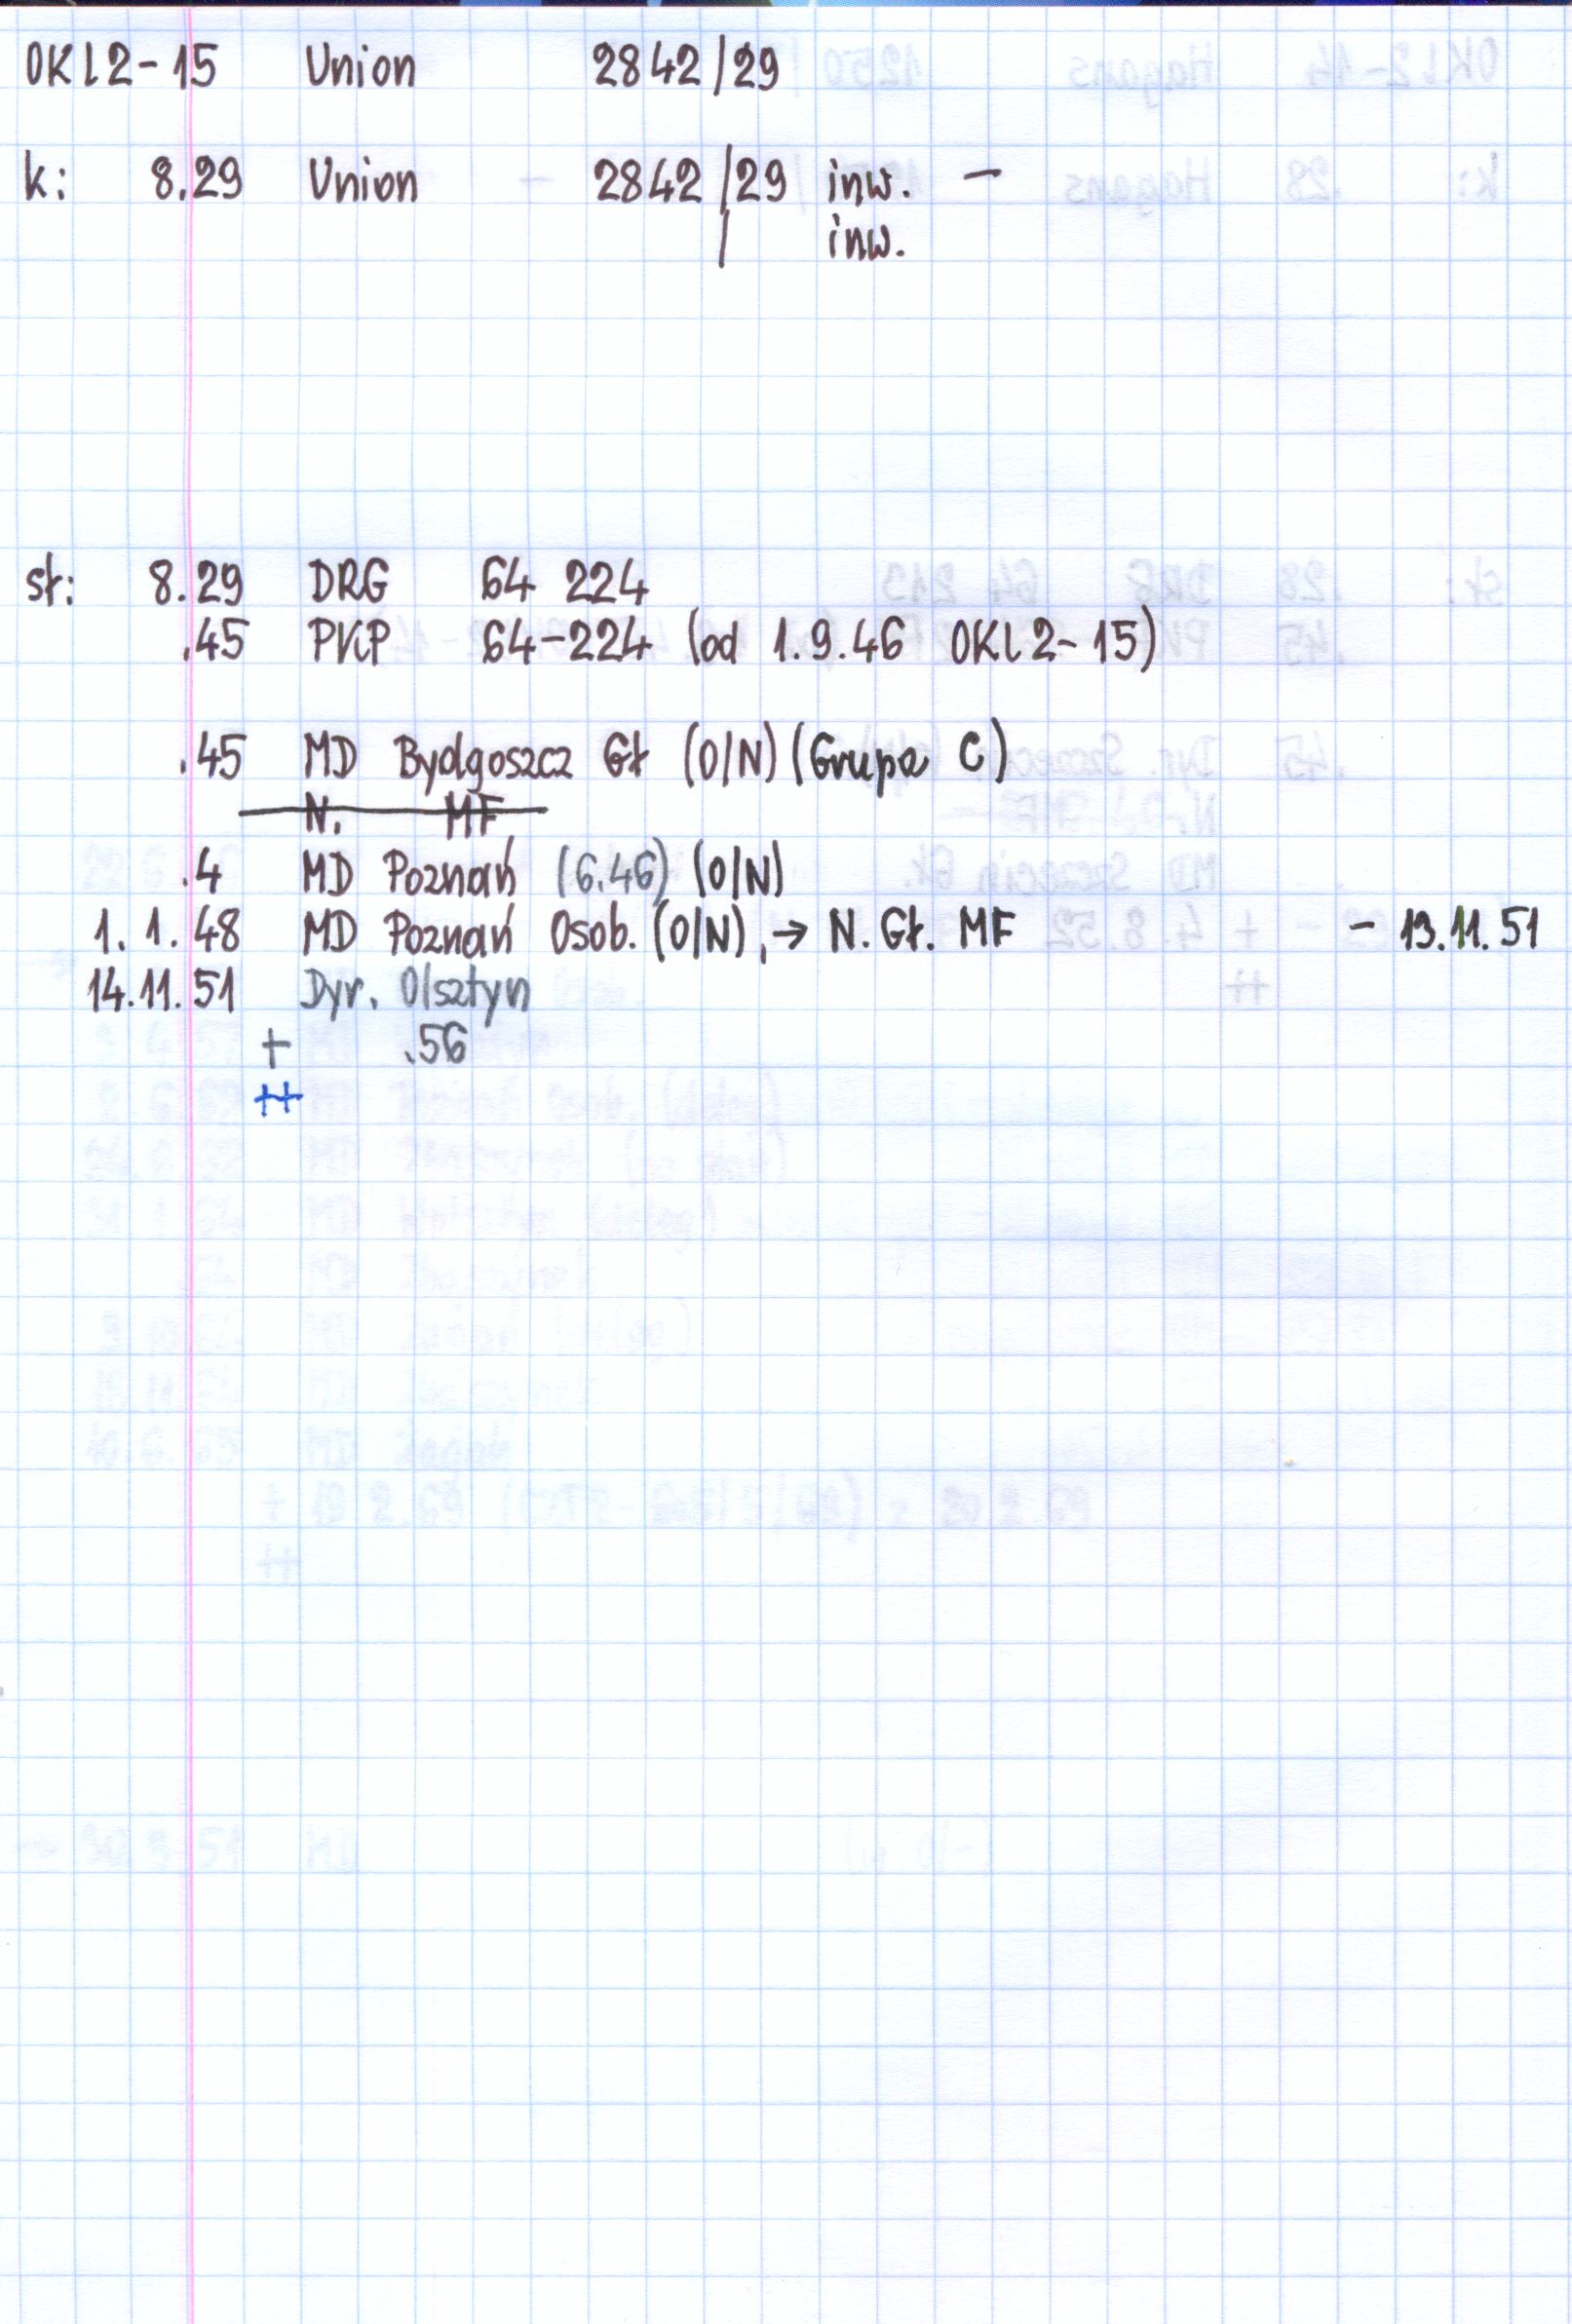 OKl2-15 Union 2842/29
k: 8.29 Union 2842/29 inw. -
/ inw.
st: 8.29 DRG 64 224
.45 PKP 64-224 (od 1.9.46 OKl2-15)
.45 MD Bydgoszcz Gł (O/N) (Grupa C)
N. MF
.4 MD Poznań (6.46) (O/N)
1.1.48 MD Poznań Osob. (O/N), → N. Gł. MF - 13.11.51
14.11.51 Dyr. Olsztyn
+ .56
++